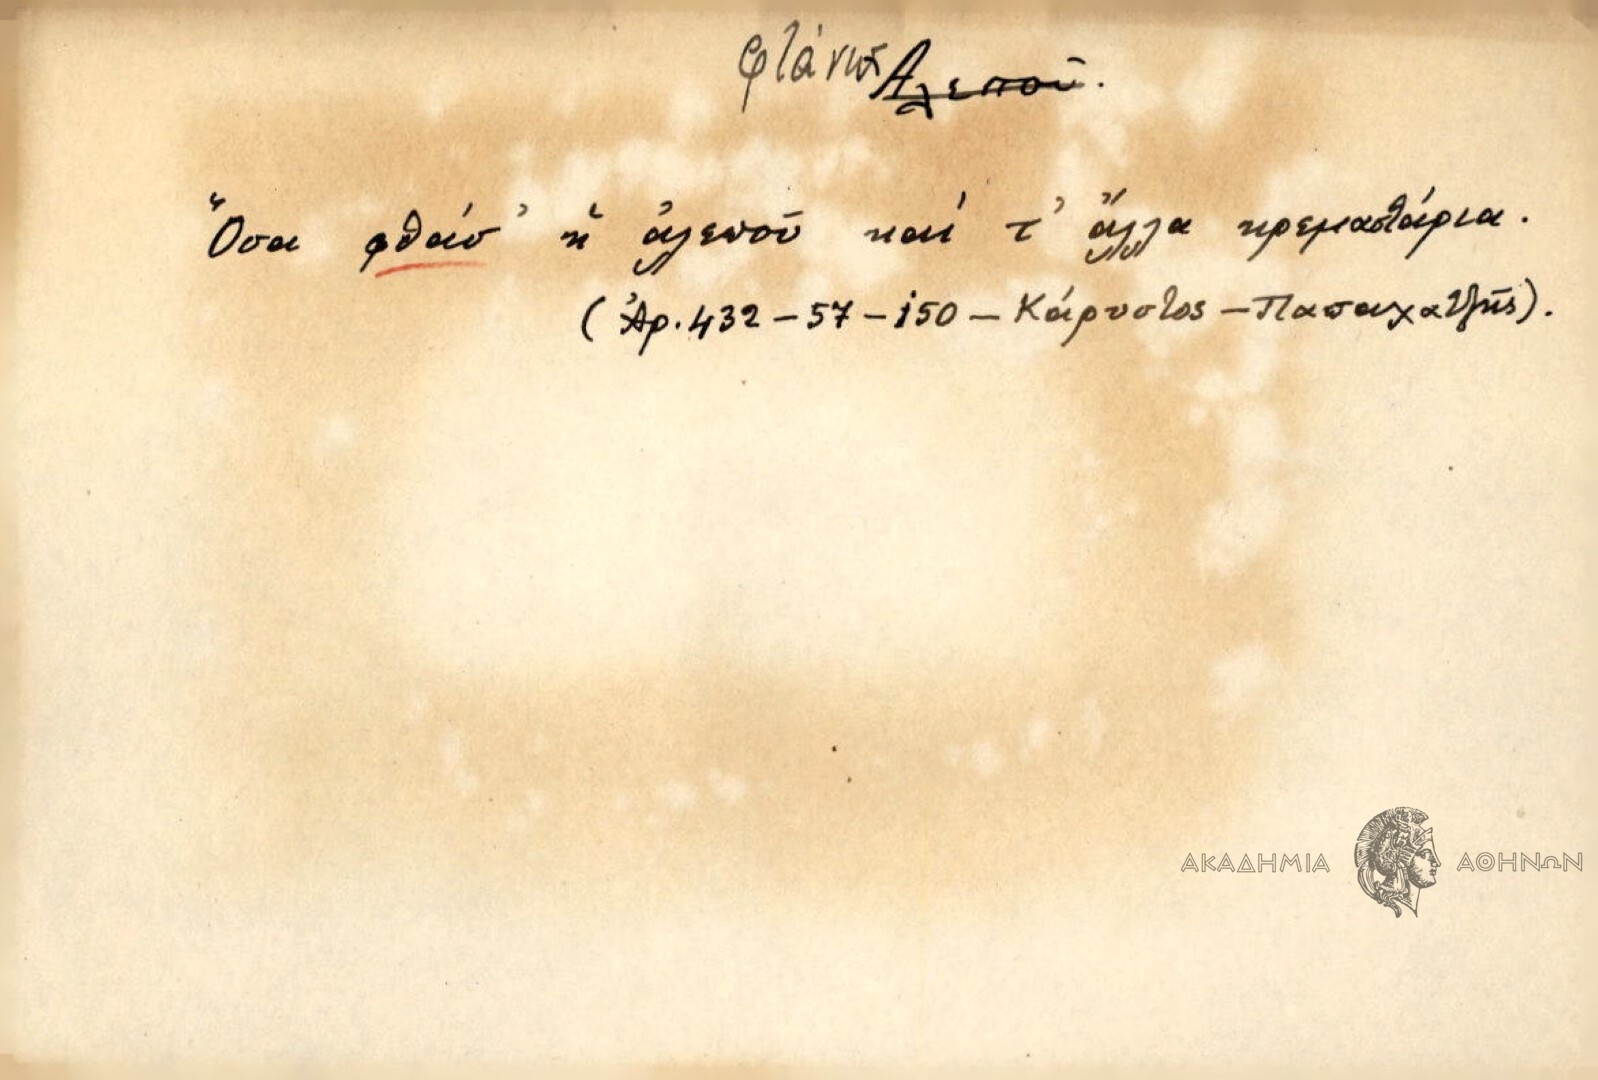 φτάνω ~~Αλεπού~~.
Ὅσα φθάσ' ἡ ἀλεποῦ καί τ' ἄλλα κρεμαστάρια.
(Ἀρ. 432 – 57 – 150 – Κάρυστος – Παπαχατζῆς).
ΑΚΑΔΗΜΙΑ ΑΘΗΝΩΝ